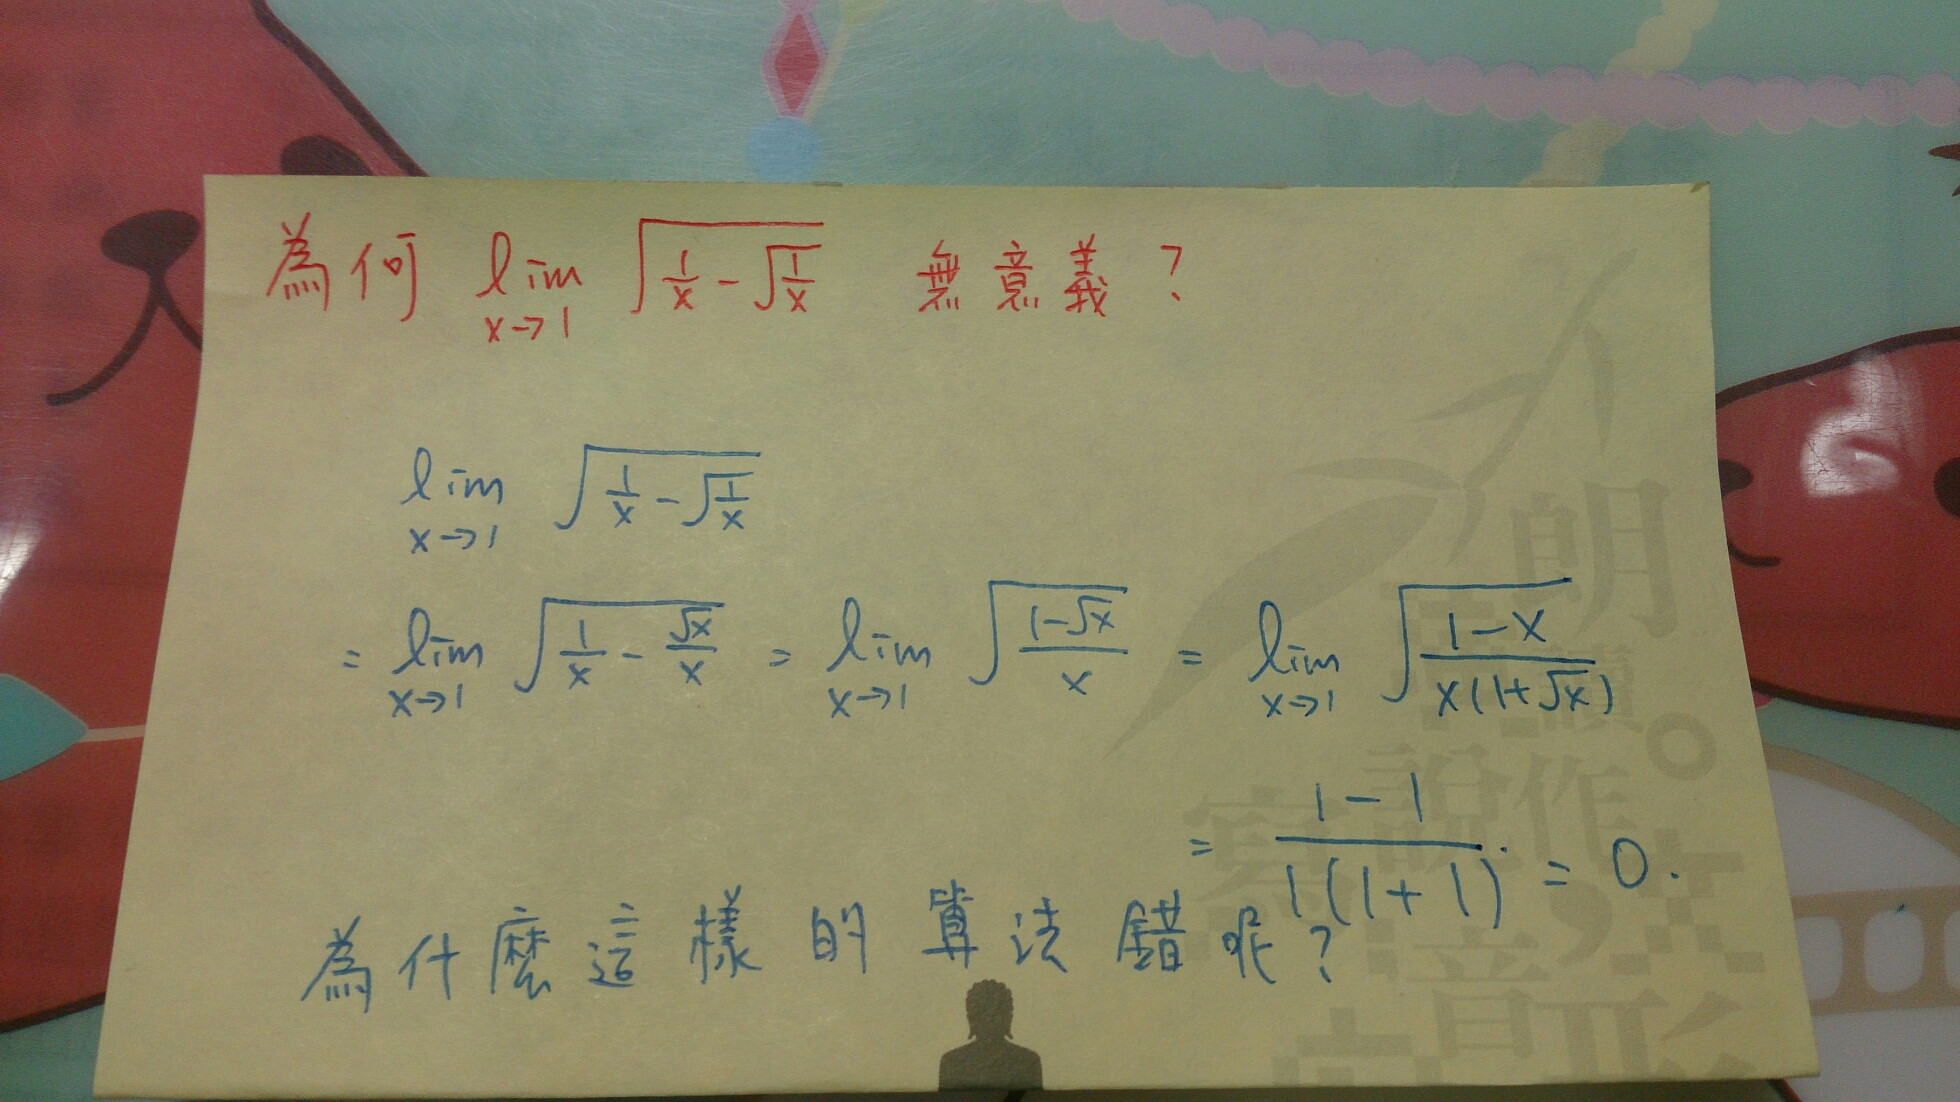 為何 lim x→1 √(1/x - √(1/x)) 無意義?
lim x→1 √(1/x - √(1/x))
= lim x→1 √(1/x - √x/x) = lim x→1 √((1-√x)/x) = lim x→1 √((1-x)/(x(1+√x)))
= (1-1)/(1(1+1)) = 0.
為什麼這樣的算法錯呢?
朗
讀。
說作
寫
音